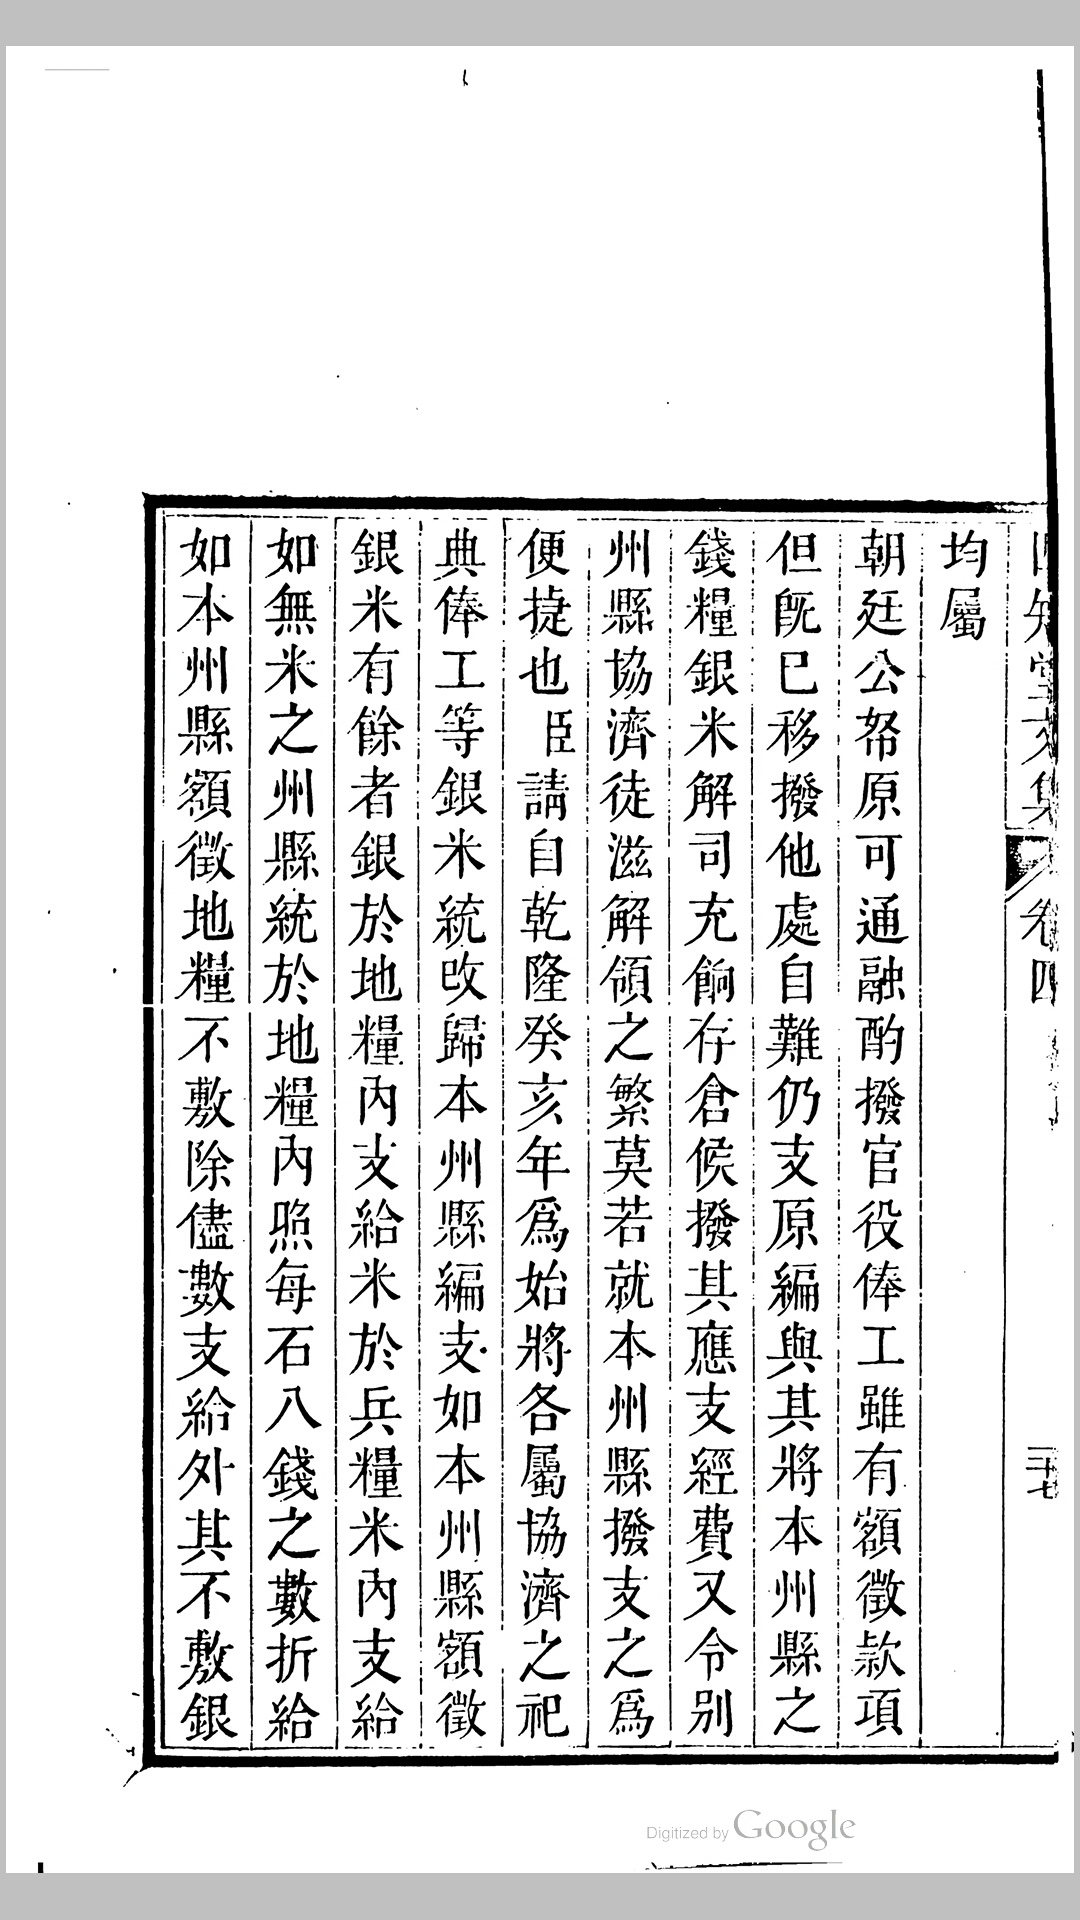 四知堂文集 卷四 二十七
均屬
朝廷公帑原可通融酌撥官役俸工雖有額徵款項
但既已移撥他處自難仍支原編與其將本州縣之
錢糧銀米解司充餉存倉候撥其應支經費又令別
州縣協濟徒滋解領之繁莫若就本州縣撥支之爲
便捷也臣請自乾隆癸亥年爲始將各屬協濟之祀
典俸工等銀米統改歸本州縣編支如本州縣額徵
銀米有餘者銀於地糧內支給米於兵糧米內支給
如無米之州縣統於地糧內照每石八錢之數折給
如本州縣額徵地糧不敷除儘數支給外其不敷銀
Digitized by Google